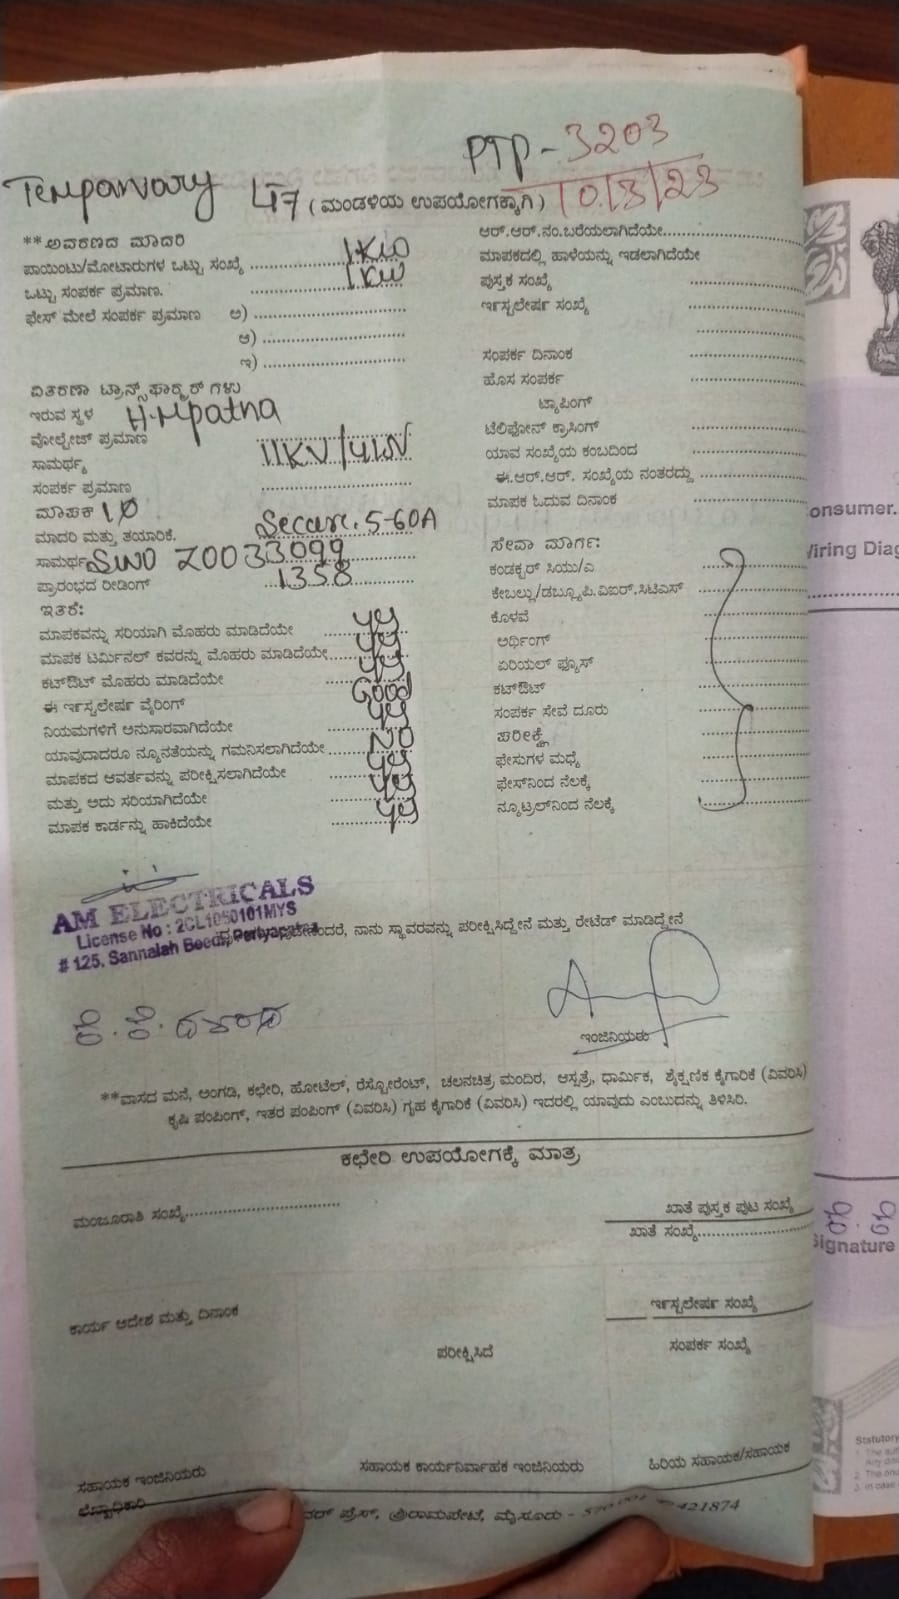 PTP-3203
Temporvary 47 (ಮಂಡಳಿಯ ಉಪಯೋಗಕ್ಕಾಗಿ) 10/3/23
**ಅವರಣದ ಮಾದರಿ
ಪಾಯಿಂಟು/ಮೋಟಾರುಗಳ ಒಟ್ಟು ಸಂಖ್ಯೆ 1KW
ಒಟ್ಟು ಸಂಪರ್ಕ ಪ್ರಮಾಣ. 1KW
ಫೇಸ್ ಮೇಲೆ ಸಂಪರ್ಕ ಪ್ರಮಾಣ ಅ)
ಆ)
ಇ)
ವಿತರಣಾ ಟ್ರಾನ್ಸ್‌ಫಾರ್ಮರ್ ಗಳು
ಇರುವ ಸ್ಥಳ H.Mpatna
ವೋಲ್ಟೇಜ್ ಪ್ರಮಾಣ
ಸಾಮರ್ಥ್ಯ 11KV/
ಸಂಪರ್ಕ ಪ್ರಮಾಣ
ಮಾಪಕ 1Ø
ಮಾದರಿ ಮತ್ತು ತಯಾರಿಕೆ. Secure. 5-60A
ಸಾಮರ್ಥ್ಯ 20033099
ಪ್ರಾರಂಭದ ರೀಡಿಂಗ್ 1358
ಇತರೆ:
ಮಾಪಕವನ್ನು ಸರಿಯಾಗಿ ಮೊಹರು ಮಾಡಿದೆಯೇ yes
ಮಾಪಕ ಟರ್ಮಿನಲ್ ಕವರನ್ನು ಮೊಹರು ಮಾಡಿದೆಯೇ yes
ಕಟ್‌ಔಟ್ ಮೊಹರು ಮಾಡಿದೆಯೇ yes
ಈ ಇನ್ಸ್ಟಲೇಷನ್ ವೈರಿಂಗ್ Good
ನಿಯಮಗಳಿಗೆ ಅನುಸಾರವಾಗಿದೆಯೇ yes
ಯಾವುದಾದರೂ ನ್ಯೂನತೆಯನ್ನು ಗಮನಿಸಲಾಗಿದೆಯೇ NO
ಮಾಪಕದ ಆವರ್ತವನ್ನು ಪರೀಕ್ಷಿಸಲಾಗಿದೆಯೇ yes
ಮತ್ತು ಅದು ಸರಿಯಾಗಿದೆಯೇ yes
ಮಾಪಕ ಕಾರ್ಡನ್ನು ಹಾಕಿದೆಯೇ yes
ಆರ್.ಆರ್.ನಂ.ಬರೆಯಲಾಗಿದೆಯೇ
ಮಾಪಕದಲ್ಲಿ ಹಾಳೆಯನ್ನು ಇಡಲಾಗಿದೆಯೇ
ಪುಸ್ತಕ ಸಂಖ್ಯೆ
ಇನ್ಸ್ಟಲೇಷನ್ ಸಂಖ್ಯೆ
ಸಂಪರ್ಕ ದಿನಾಂಕ
ಹೊಸ ಸಂಪರ್ಕ
ಟ್ಯಾಪಿಂಗ್
ಟೆಲಿಫೋನ್ ಕ್ರಾಸಿಂಗ್
ಯಾವ ಸಂಖ್ಯೆಯ ಕಂಬದಿಂದ
ಈ.ಆರ್.ಆರ್. ಸಂಖ್ಯೆಯ ನಂತರದ್ದು
ಮಾಪಕ ಓದುವ ದಿನಾಂಕ
ಸೇವಾ ಮಾರ್ಗ:
ಕಂಡಕ್ಟರ್ ಸಿಯು/ಎ
ಕೇಬಲ್ಲು/ಡಬ್ಲ್ಯೂಪಿ.ವಿಐರ್.ಸಿಟಿಎಸ್
ಕೊಳವೆ
ಅರ್ಥಿಂಗ್
ಏರಿಯಲ್ ಫ್ಯೂಸ್
ಕಟ್‌ಔಟ್
ಸಂಪರ್ಕ ಸೇವೆ ದೂರು
ಪರೀಕ್ಷೆ
ಫೇಸುಗಳ ಮಧ್ಯೆ
ಫೇಸ್‌ನಿಂದ ನೆಲಕ್ಕೆ
ನ್ಯೂಟ್ರಲ್‌ನಿಂದ ನೆಲಕ್ಕೆ
AM ELECTRICALS
License No : 2CL1050101MYS
# 125. Sannaiah Beedi, Periyapatna
ನಾನು ಸ್ಥಾವರವನ್ನು ಪರೀಕ್ಷಿಸಿದ್ದೇನೆ ಮತ್ತು ರೇಟೆಡ್ ಮಾಡಿದ್ದೇನೆ
ಇಂಜಿನಿಯರು
**ವಾಸದ ಮನೆ, ಅಂಗಡಿ, ಕಛೇರಿ, ಹೋಟೆಲ್, ರೆಸ್ಟೋರೆಂಟ್, ಚಲನಚಿತ್ರ ಮಂದಿರ, ಆಸ್ಪತ್ರೆ, ಧಾರ್ಮಿಕ, ಶೈಕ್ಷಣಿಕ ಕೈಗಾರಿಕೆ (ವಿವರಿಸಿ)
ಕೃಷಿ ಪಂಪಿಂಗ್, ಇತರ ಪಂಪಿಂಗ್ (ವಿವರಿಸಿ) ಗೃಹ ಕೈಗಾರಿಕೆ (ವಿವರಿಸಿ) ಇದರಲ್ಲಿ ಯಾವುದು ಎಂಬುದನ್ನು ತಿಳಿಸಿರಿ.
ಕಛೇರಿ ಉಪಯೋಗಕ್ಕೆ ಮಾತ್ರ
ಮಂಜೂರಾತಿ ಸಂಖ್ಯೆ
ಖಾತೆ ಪುಸ್ತಕ ಪುಟ ಸಂಖ್ಯೆ
ಖಾತೆ ಸಂಖ್ಯೆ
ಕಾರ್ಯ ಆದೇಶ ಮತ್ತು ದಿನಾಂಕ
ಇನ್ಸ್ಟಲೇಷನ್ ಸಂಖ್ಯೆ
ಪರೀಕ್ಷಿಸಿದೆ
ಸಂಪರ್ಕ ಸಂಖ್ಯೆ
ಸಹಾಯಕ ಇಂಜಿನಿಯರು
ಲೆಕ್ಕಾಧಿಕಾರಿ
ಸಹಾಯಕ ಕಾರ್ಯನಿರ್ವಾಹಕ ಇಂಜಿನಿಯರು
ಹಿರಿಯ ಸಹಾಯಕ/ಸಹಾಯಕ
ಪ್ರೆಸ್, ಶ್ರೀರಾಮಪೇಟೆ, ಮೈಸೂರು - 421874
onsumer.
Wiring Diag
Signature
Statutory